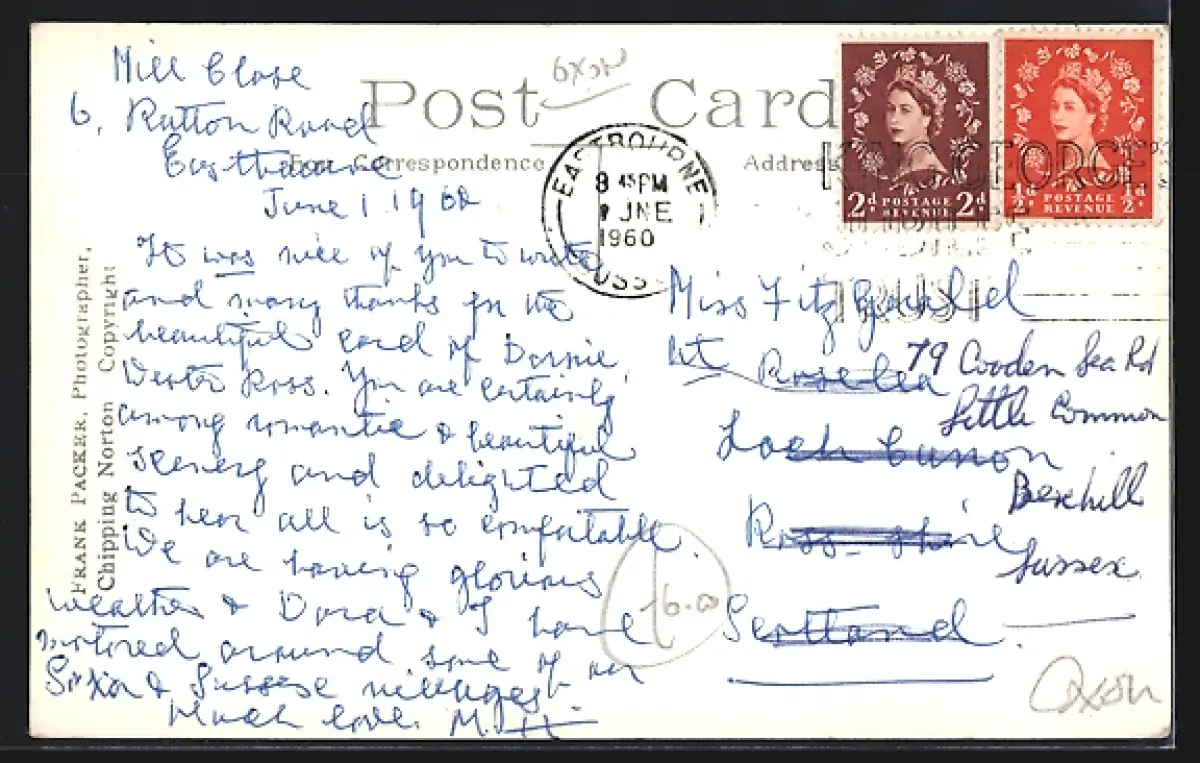 Mill Close
6, Ratton Road
Eastbourne
June 1 1960
Post Card
For Correspondence
Address
6xon
EASTBOURNE
8 45 PM
1 JNE
1960
SUSSEX
2d POSTAGE REVENUE 2d
½d POSTAGE REVENUE ½d
KING GEORGE
TRUST
It was nice of you to write
and many thanks for the
beautiful card of Dornie,
Wester Ross. You are certainly
among romantic & beautiful
scenery and delighted
to hear all is so comfortable.
We are having glorious
weather & Dora & I have
motored around some of our
& Sussex villages.
Much love. M. H.
Miss Fitzgerald
at Rose Lea
Loch Cannon
Ross-shire
Scotland
79 Cooden Sea Rd
Little Common
Bexhill
Sussex
FRANK PACKER, Photographer,
Chipping Norton Copyright
16.00
Oxon